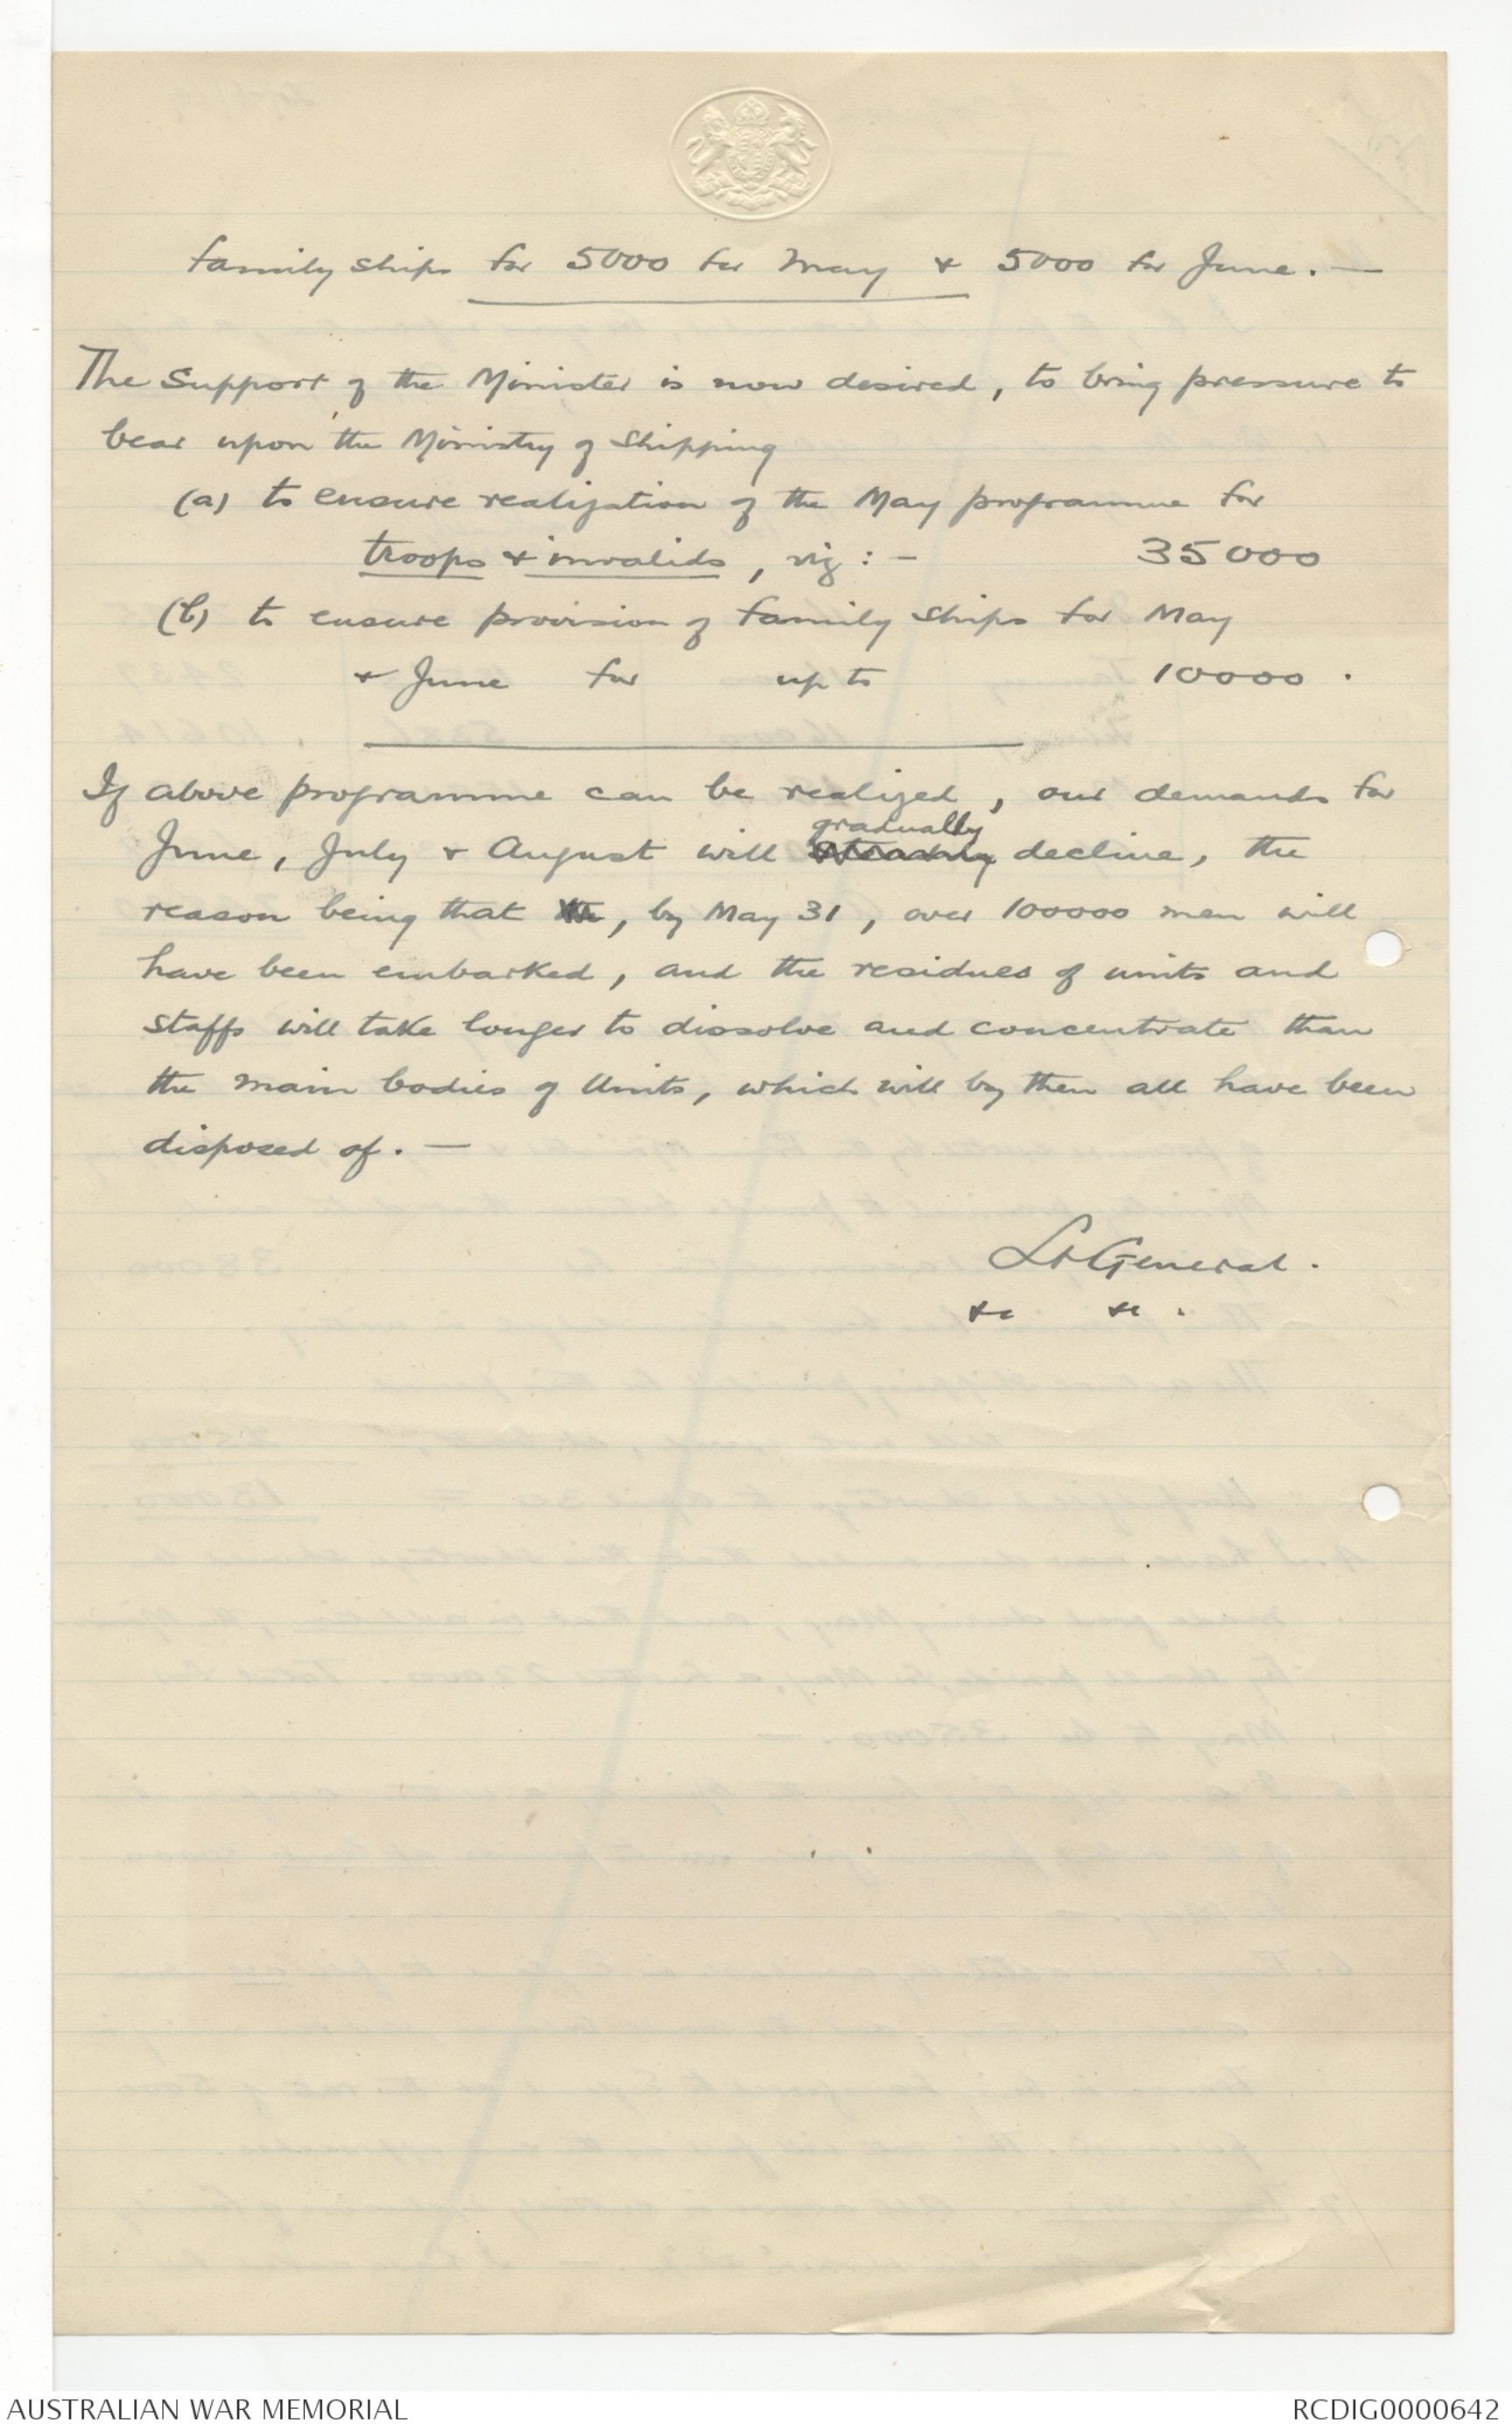 family ships for 5000 for May & 5000 for June. —
The Support of the Minister is now desired, to bring pressure to
bear upon the Ministry of Shipping
(a) to ensure realization of the May programme for
troops & invalids, viz :- 35000
(b) to ensure provision of family ships for May
& June for up to 10000 .
If above programme can be realized, our demands for
gradually
June, July & August will steadily decline, the
reason being that the, by May 31, over 100000 men will
have been embarked, and the residues of units and
staffs will take longer to dissolve and concentrate than
the main bodies of Units, which will by then all have been
disposed of. —
Lt General.
&c &c .
AUSTRALIAN WAR MEMORIAL
RCDIG0000642